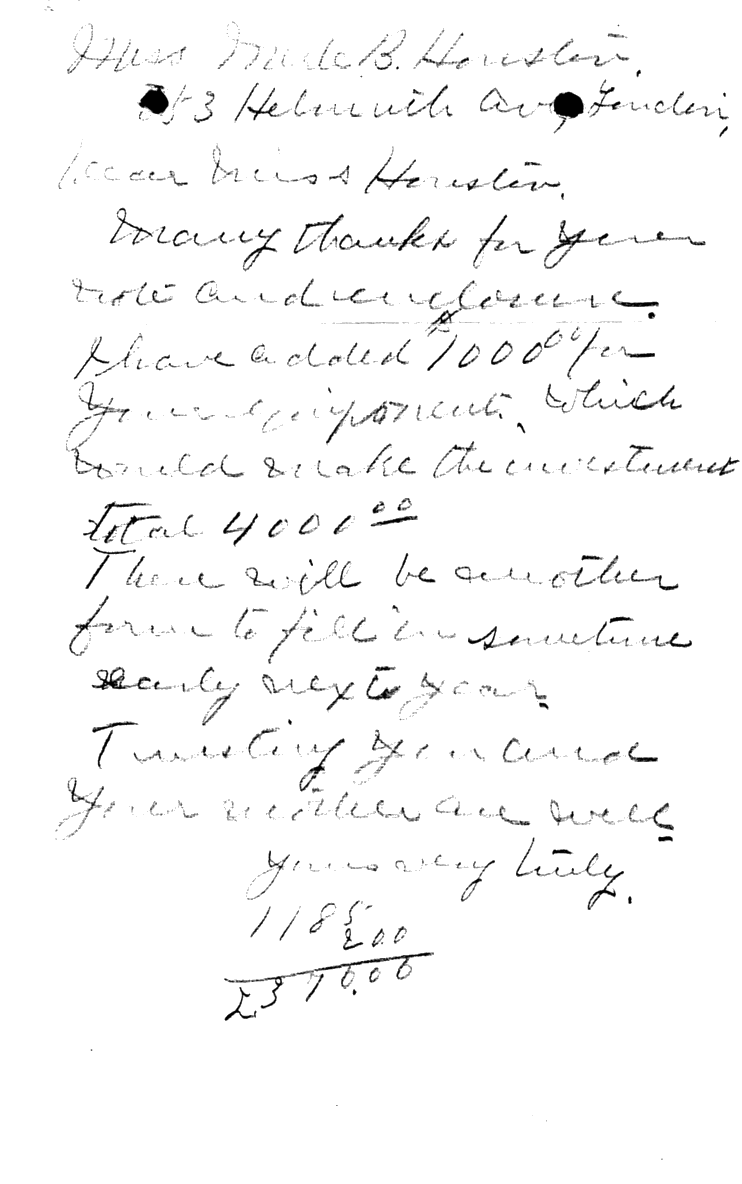 Miss B. Houston,
Helmuth Ave, London,
Dear Miss Houston,
Many thanks for your
note and enclosure.
I have added 1000 00 for
Your equipment, which
would make the investment
total 4000 00
There will be another
form to fill in sometime
early next year.
Trusting You and
Your mother are well
yours very truly,
118 5
2 00
2,370.00